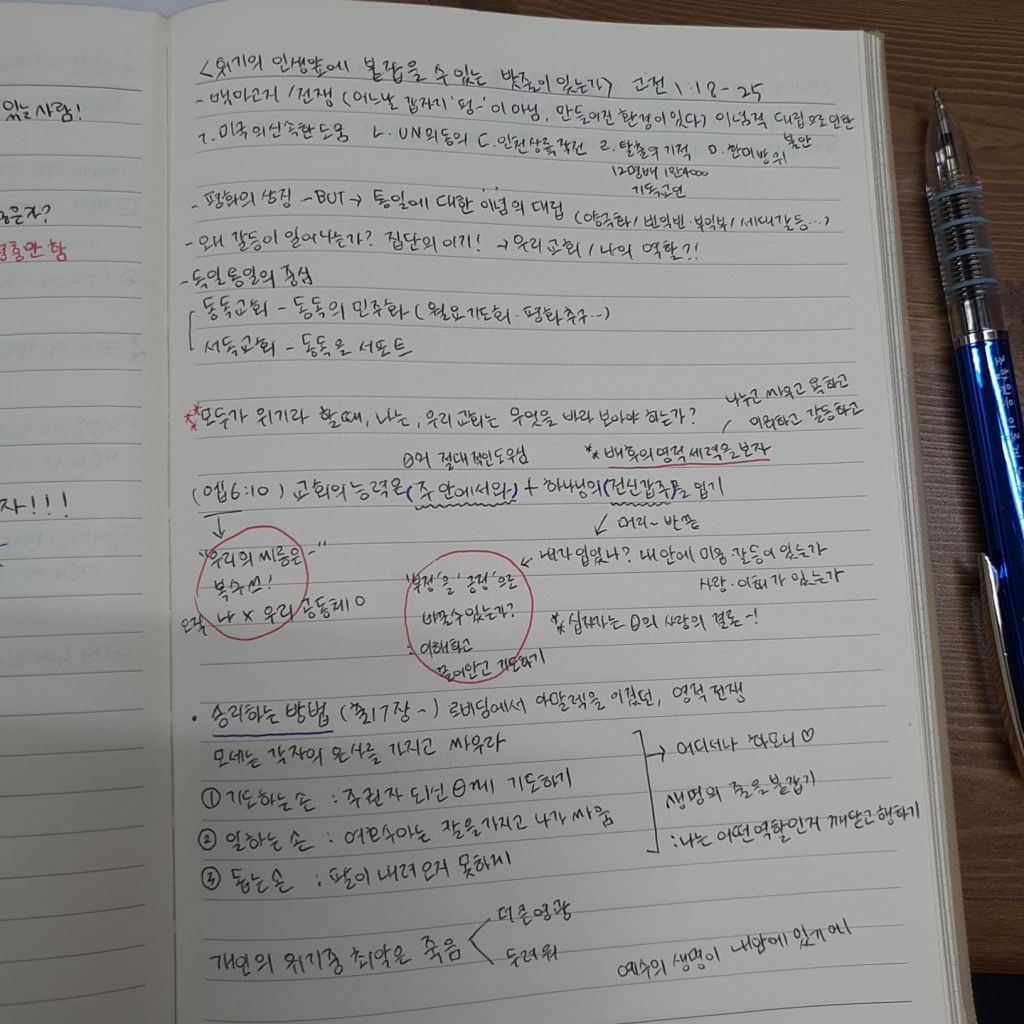 있는사람!
은자?
충만 함
자!!!
<위기의 인생앞에 붙잡을 수 있는 밧줄이 있는가> 고전 1:18-25
- 백마고지 / 전쟁 (어느날 갑자기 '펑-' 이 아님, 만들어진 환경이 있다) 이념적 대립으로 인한 불안
ㄱ. 미국의 신속한 도움 ㄴ. UN의 동의 ㄷ. 인천상륙작전 ㄹ. 탈출의 기적 ㅁ. 한미방위
12명배 1만4000
기독교인
- 평화의 상징 - BUT → 통일에 대한 이념의 대립 (양극화 / 빈익빈·부익부 / 세대갈등...)
- 왜 갈등이 일어나는가? 집단의 이기! → 우리교회 / 나의 역할?!
- 독일통일의 중심
동독교회 - 동독의 민주화 (월요기도회 · 평화촉구...)
서독교회 - 동독을 서포트
나누고 싸우고 욕하고
** 모두가 위기라 할때, 나는, 우리교회는 무엇을 바라보아야 하는가? 미워하고 갈등하고
θ의 절대적인도우심 * 배후의영적세력을보자
(엡6:10) 교회의 능력은 (주 안에서와) + 하나님의 (전신갑주)를 입기
↙ 머리~반쯤
"우리의 씨름은~" ← 내가 입었나? 내 안에 미움·갈등이 있는가
복수쓰! '부정'을 '긍정'으로 사랑·이해가 있는가
오직 나 x 우리 공동체 O 바꿀수있는가? * 십자가는 θ의 사랑의 결론-!
: 이해하고
끌어안고 기도하기
• 승리하는 방법 (출17장~) 르비딤에서 아말렉을 이겼던, 영적전쟁
모세는 각자의 은사를 가지고 싸우라 → 어디서나 하모니♡
① 기도하는 손 : 주권자 되신 θ께 기도하기 생명의 줄을붙잡기
② 일하는 손 : 여호수아는 칼을가지고 나가싸움 : 나는 어떤역할인지 깨닫고행하기
③ 돕는손 : 팔이 내려오지 못하게
더큰영광
개인의 위기중 최악은 죽음 < 두려워 예수의 생명이 내안에 있기에